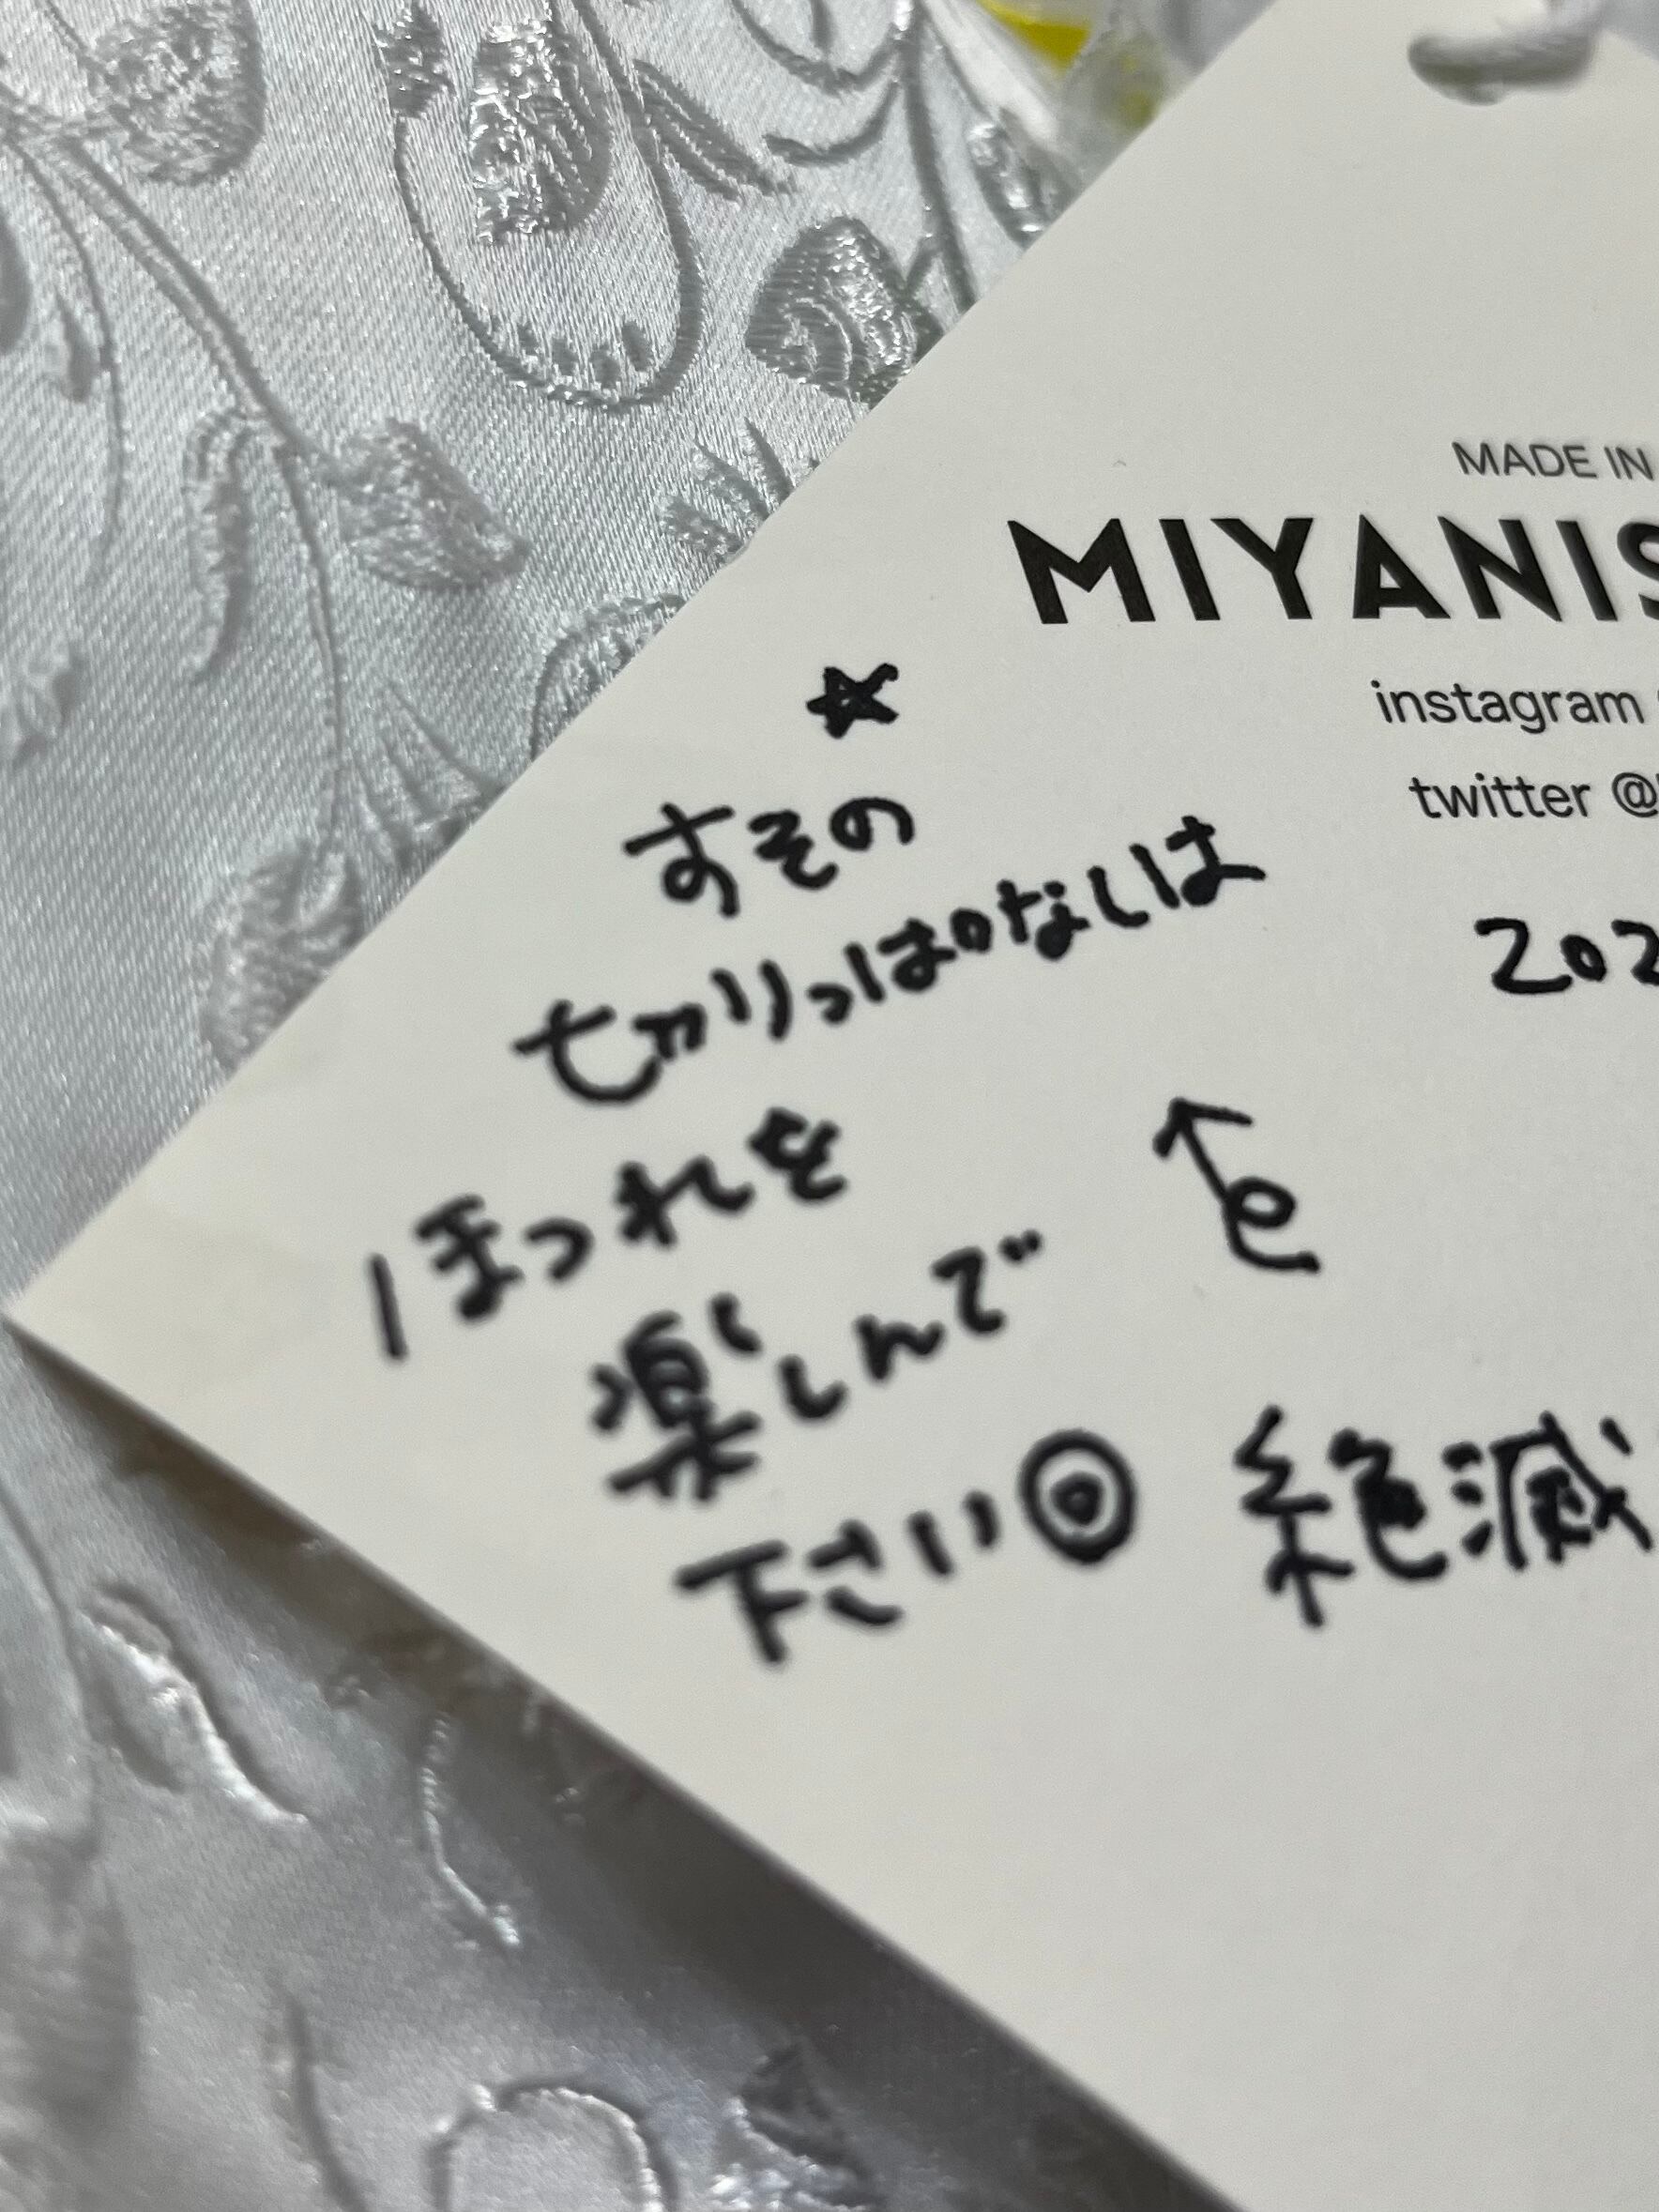 MADE IN
MIYANIS
instagram
twitter @
☆
すその
切りっぱのなしは
202
ほつれを
楽しんで
下さい◎
と
絶滅